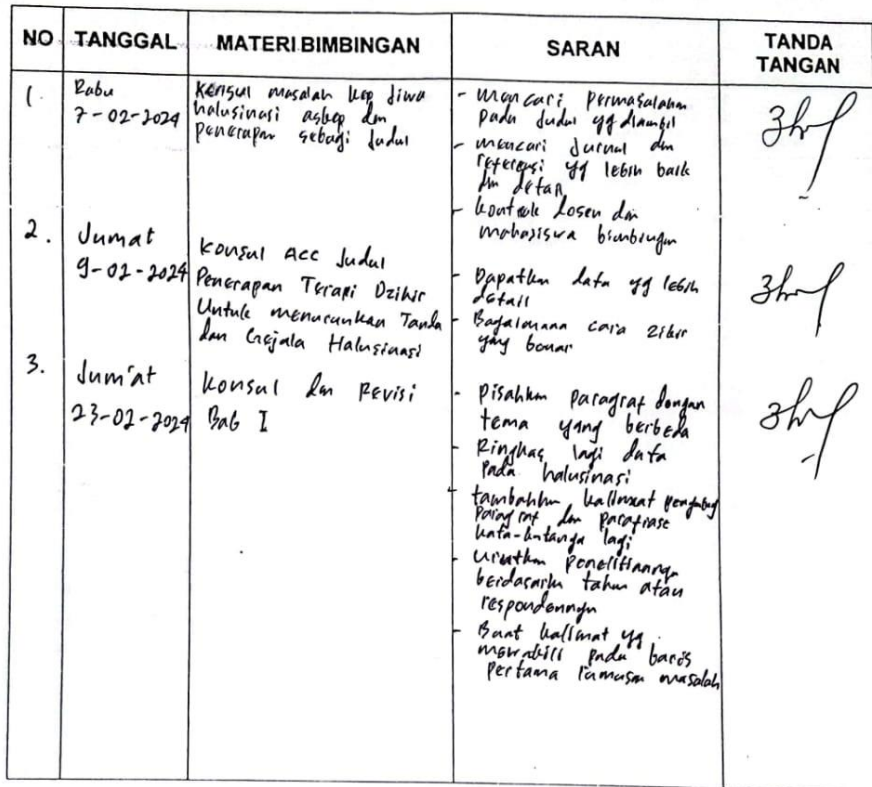 NO TANGGAL MATERI BIMBINGAN SARAN TANDA TANGAN
1. Rabu
7-02-2024
Konsul masalah kep jiwa
halusinasi askep dan
penerapan sebagi judul
- Mencari permasalahan
pada judul yg diambil
- mencari jurnal dan
referensi yg lebih baik
dan detail
- kontrak dosen dan
mahasiswa bimbingan
2. Jumat
9-02-2024
Konsul Acc Judul
Penerapan Terapi Dzikir
Untuk menurunkan Tanda
dan Gejala Halusinasi
- Dapatkan data yg lebih
detail
- Bagaimana cara zikir
yang benar
3. Jum'at
23-02-2024
Konsul dan Revisi
Bab I
- Pisahkan paragraf dengan
tema yang berbeda
- Ringkas lagi data
pada halusinasi
- tambahkan kalimat
paragraf dan parafrase
lagi
- Urutkan penelitiannya
berdasarkan tahun atau
respondennya
- Buat kalimat yg
mewakili pada baris
pertama rumusan masalah